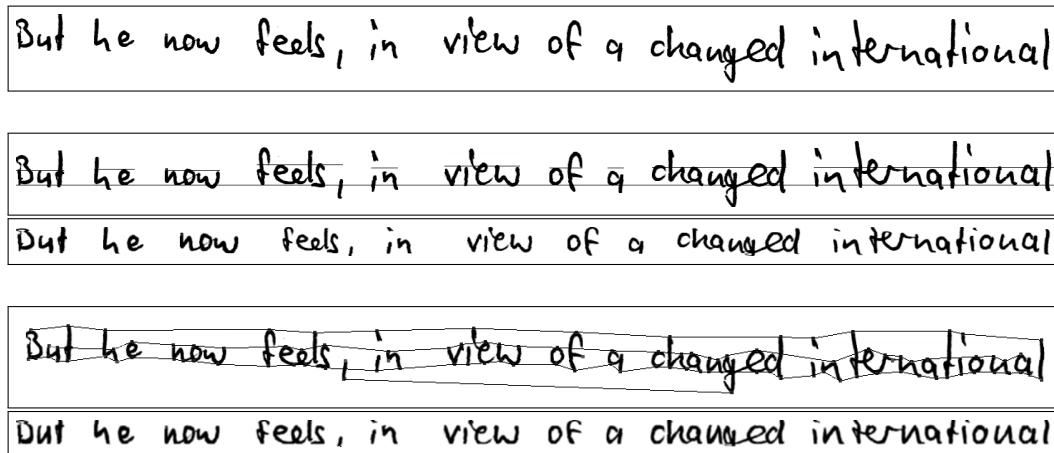 But he now feels, in view of a changed international
But he now feels, in view of a changed international
But he now feels, in view of a changed international
But he now feels, in view of a changed international
But he now feels, in view of a changed international